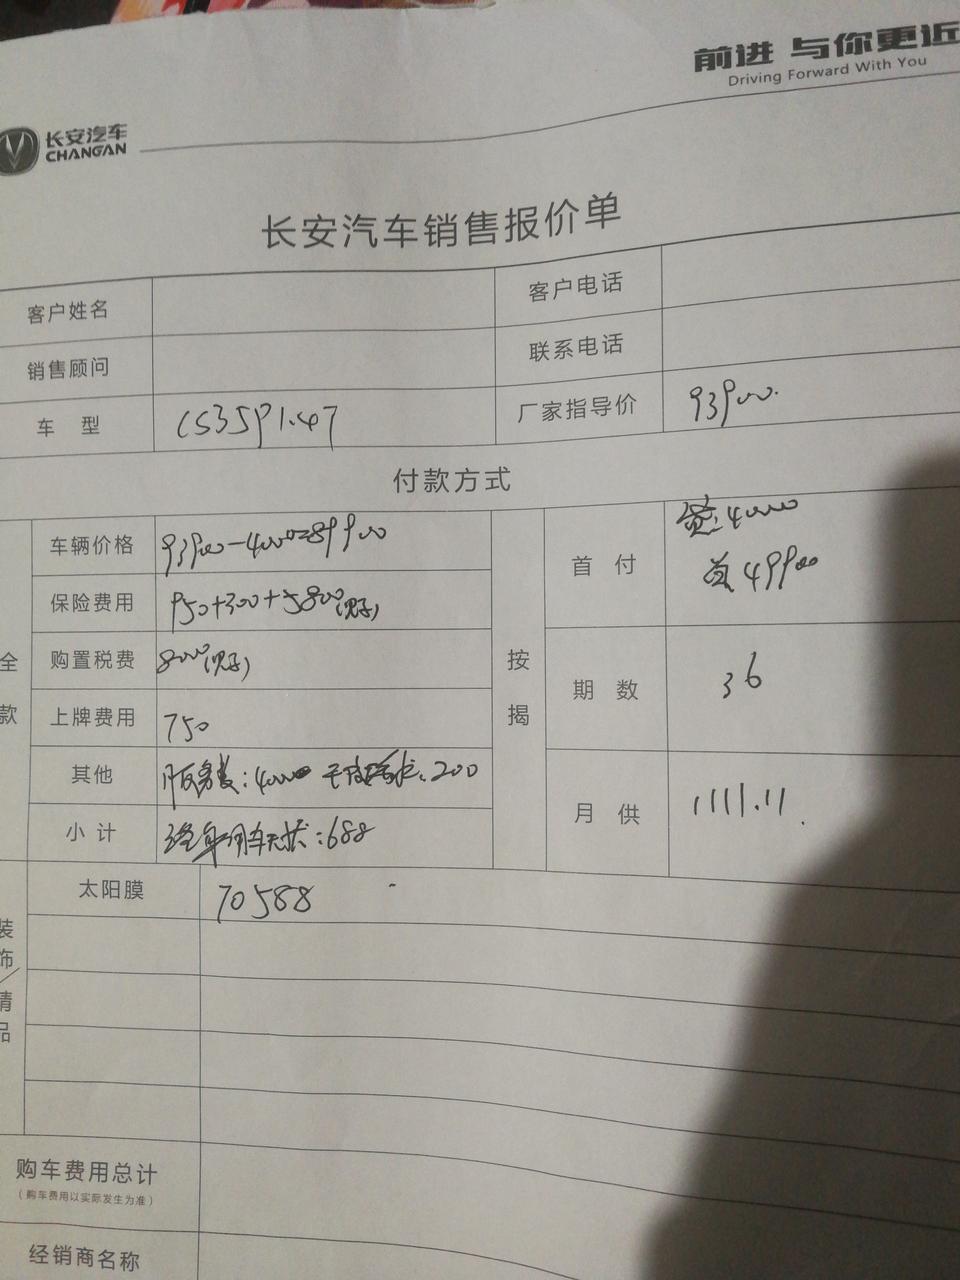 前进 与你更近
Driving Forward With You
长安汽车
CHANGAN
长安汽车销售报价单
客户姓名
客户电话
销售顾问
联系电话
车 型 CS35P1.4T
厂家指导价 93900.
付款方式
全款
车辆价格 93900-4000=89900
保险费用 950+300+5800
购置税费 8000
上牌费用 750
其他 服务费:4000 200
小计 终身用车无忧:688
按揭
首 付 贷:40000
首49900
期 数 36
月 供 1111.11.
装饰/精品
太阳膜 70588
购车费用总计
(购车费用以实际发生为准)
经销商名称